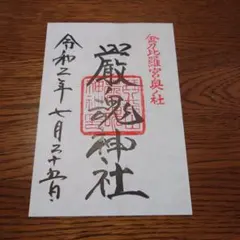 金刀比羅宮奥社
厳魂神社
令和二年七月二十五日